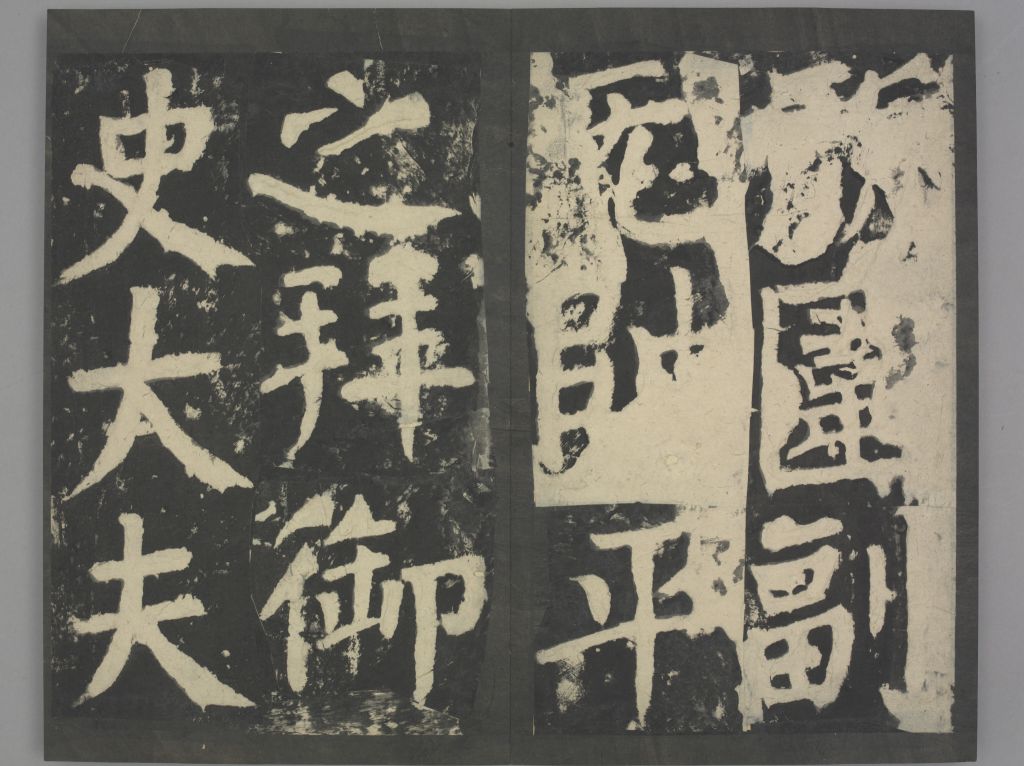 副
師平
之拜御
史大夫